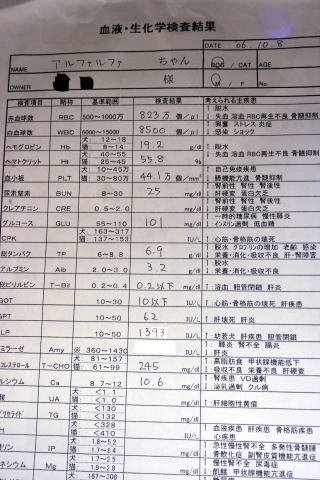 血液・生化学検査結果
DATE 06.10.8
NAME アルファルファ ちゃん DOG / CAT AGE
OWNER 様 M F NO.
検査項目 略称 基準範囲 検査結果 考えられる主疾患
赤血球数 RBC 500~1000万 823万 個/μl ↑:脱水 ↓:失血 溶血 RBC再生不良 骨髄抑制
白血球数 WBC 6000~15000 8500 個/μl ↑:興奮 ストレス 炎症 ↓:感染 ショック
ヘモグロビン Hb 犬:12~18 猫:8~14 19.2 g/dl ↑:脱水 ↓:失血 溶血 RBC再生不良 骨髄抑制
ヘマトクリット Ht 犬:40~55 猫:25~45 55.8 %
血小板 PLT 犬:20~50万 猫:30~80万 44.1万 個/mm³ ↑:自己免疫疾患 ↓:脾機能亢進 骨髄抑制
尿素窒素 BUN 8~30 25 mg/dl ↑:腎前性 腎性 腎後性 ↓:肝硬変 蛋白欠乏
クレアチニン CRE 0.5~2.0 mg/dl ↑:腎前性 腎性 腎後性 ↓:肝硬変 蛋白欠乏
グルコース GLU 55~110 101 mg/dl ↑:一時的糖尿病 慢性膵炎 ↓:インスリン過剰 低血糖
CPK 犬:163~317 猫:137~153 ↑:心筋・骨格筋の壊死
総タンパク TP 6~8.8 6.9 g/dl ↑:脱水 グロブリンの増加 老齢 感染 ↓:栄養・消化・吸収不良 肝・腎障害
アルブミン Alb 2.0~3.0 3.2 g/dl ↑:脱水 ↓:栄養・消化・吸収不良
総ビリルビン T-Bil 0.2~0.4 0.2以下 mg/dl ↑:溶血 胆管閉塞 肝炎
GOT 10~30 10以下 IU/l ↑:心筋・骨格筋の壊死 肝疾患
GPT 10~50 62 IU/l ↑:肝壊死 肝炎
LP 10~50 1393 IU/l ↑:幼若犬 肝疾患 胆管閉塞
ミラーゼ Amy ※ 360~1430 ↑:膵炎 腎不全 腸炎 ↓:肝炎
コレステロール T-CHO 犬:81~157 猫:61~99 245 mg/dl ↑:高脂肪食 甲状腺機能低下 ↓:吸収不良 栄養不良 肝硬変
ルシウム Ca 8.7~12 10.6 mg/dl ↑:腎疾患 VD過剰 ↓:泌乳過剰 クル病
UA 犬:<1.1 猫:<1.0 mg/dl ↑:肝細胞性黄疸
リセライド TG 犬:<130 猫:<132 mg/dl
H 犬:<328 猫:<410 IU/l ↑:血液疾患 肝疾患 骨格筋疾患 心疾患
リン IP 犬:1.8~5.2 猫:2.4~ mg/dl ↑:急慢性腎不全 多発性骨髄腫 ↓:骨軟化症 副腎皮質機能亢進
ネシウム Mg 犬:1.7~2.9 猫:1.9~2.8 mg/dl ↑:慢性腎不全 尿毒症 ↓:飢餓 甲状腺機能亢進症